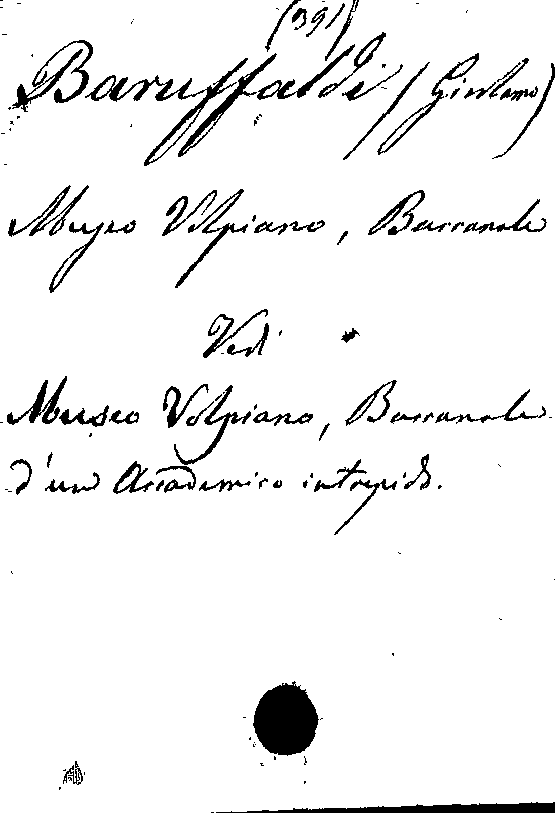 (391)
Baruffaldi (Girolamo)
Museo Volpiano, Baccanale
Vedi *
Museo Volpiano, Baccanale
d'un Accademico intrepido.